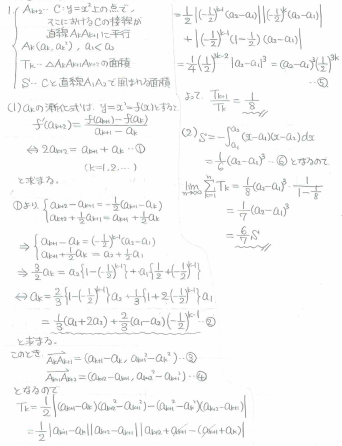 1. { A_{k+2} … C: y=x² 上の点で、
そこにおける C の接線が
直線 A_kA_{k+1} に平行
A_k(a_k, a_k²), a_1<a_2
T_k … △A_kA_{k+1}A_{k+2} の面積
S … C と直線 A_1A_2 で囲まれる面積
(1) a_k の漸化式は、y=x²=f(x) とすると
f'(a_{k+2}) = (f(a_{k+1})-f(a_k))/(a_{k+1}-a_k)
⇔ 2a_{k+2} = a_{k+1}+a_k …①
(k=1,2,…)
と求まる。
①より { a_{k+2}-a_{k+1} = -1/2(a_{k+1}-a_k)
a_{k+2}+1/2a_{k+1} = a_{k+1}+1/2a_k
⇒ { a_{k+1}-a_k = (-1/2)^{k-1}(a_2-a_1)
a_{k+1}+1/2a_k = a_2+1/2a_1
⇒ 3/2a_k = a_2{1-(-1/2)^{k-1}}+a_1{1/2+(-1/2)^{k-1}}
⇔ a_k = 2/3{1-(-1/2)^{k-1}}a_2+1/3{1+2(-1/2)^{k-1}}a_1
= 1/3(a_1+2a_2)+2/3(a_1-a_2)(-1/2)^{k-1} …②
と求まる。
このとき、A_kA_{k+1} = (a_{k+1}-a_k, a_{k+1}²-a_k²) …③
A_{k+1}A_{k+2} = (a_{k+2}-a_{k+1}, a_{k+2}²-a_{k+1}²) …④
となるので
T_k = 1/2|(a_{k+1}-a_k)(a_{k+2}²-a_{k+1}²)-(a_{k+1}²-a_k²)(a_{k+2}-a_{k+1})|
= 1/2|a_{k+1}-a_k||a_{k+2}-a_{k+1}||a_{k+2}+a_{k+1}-(a_{k+1}+a_k)|
= 1/2|(-1/2)^{k-1}(a_2-a_1)||(-1/2)^k(a_2-a_1)|
+|(-1/2)^{k-1}(1-1/2)(a_2-a_1)|
= 1/4(1/2)^{3k-2}|a_2-a_1|³ = (a_2-a_1)³(1/2)^{3k}
…⑤
よって、T_{k+1}/T_k = 1/8
(2) S = -∫_{a_1}^{a_2}(x-a_1)(x-a_2)dx
= 1/6(a_2-a_1)³ …⑥ となるので
lim_{n→∞} Σ_{k=1}^{n} T_k = 1/8(a_2-a_1)³・1/(1-1/8)
= 1/7(a_2-a_1)³
= 6/7 S